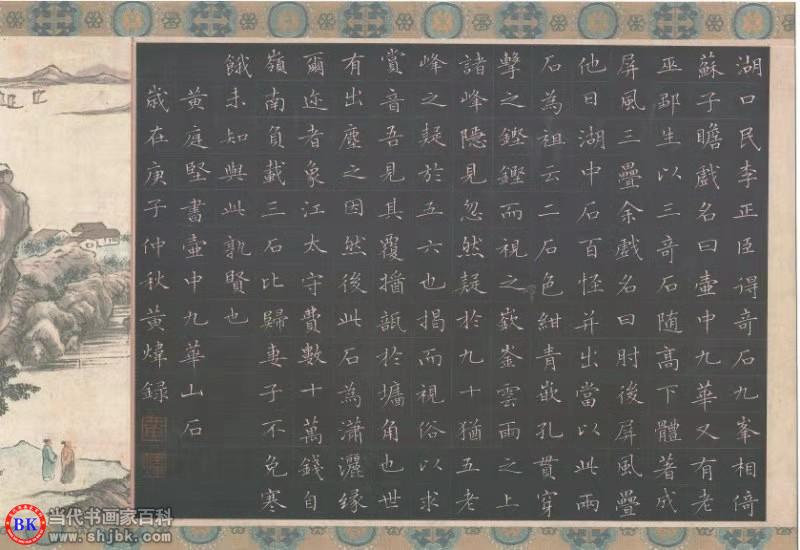 湖口民李正臣得奇石九峯相倚
蘇子瞻戲名曰壷中九華又有老
巫郢生以三奇石随髙下體著成
屏風三疊余戲名曰肘後屏風疊
他日湖中石百怪并出當以此兩
石為祖云二石色紺青嵌孔貫穿
擊之鏗鏗而視之嶔崟雲雨之上
諸峰隱見忽然疑於九十猶五老
峰之疑於五六也揭而視俗以求
賞音吾見其覆播瓿於壚角也世
有出塵之因然後此石為瀟灑緣
爾近者象江太守費數十萬錢自
嶺南負載三石比歸妻子不免寒
餓未知與此孰賢也
黄庭堅書壷中九華山石
嵗在庚子仲秋黄煒録
BK
当代书画家百科
www.shjbk.com